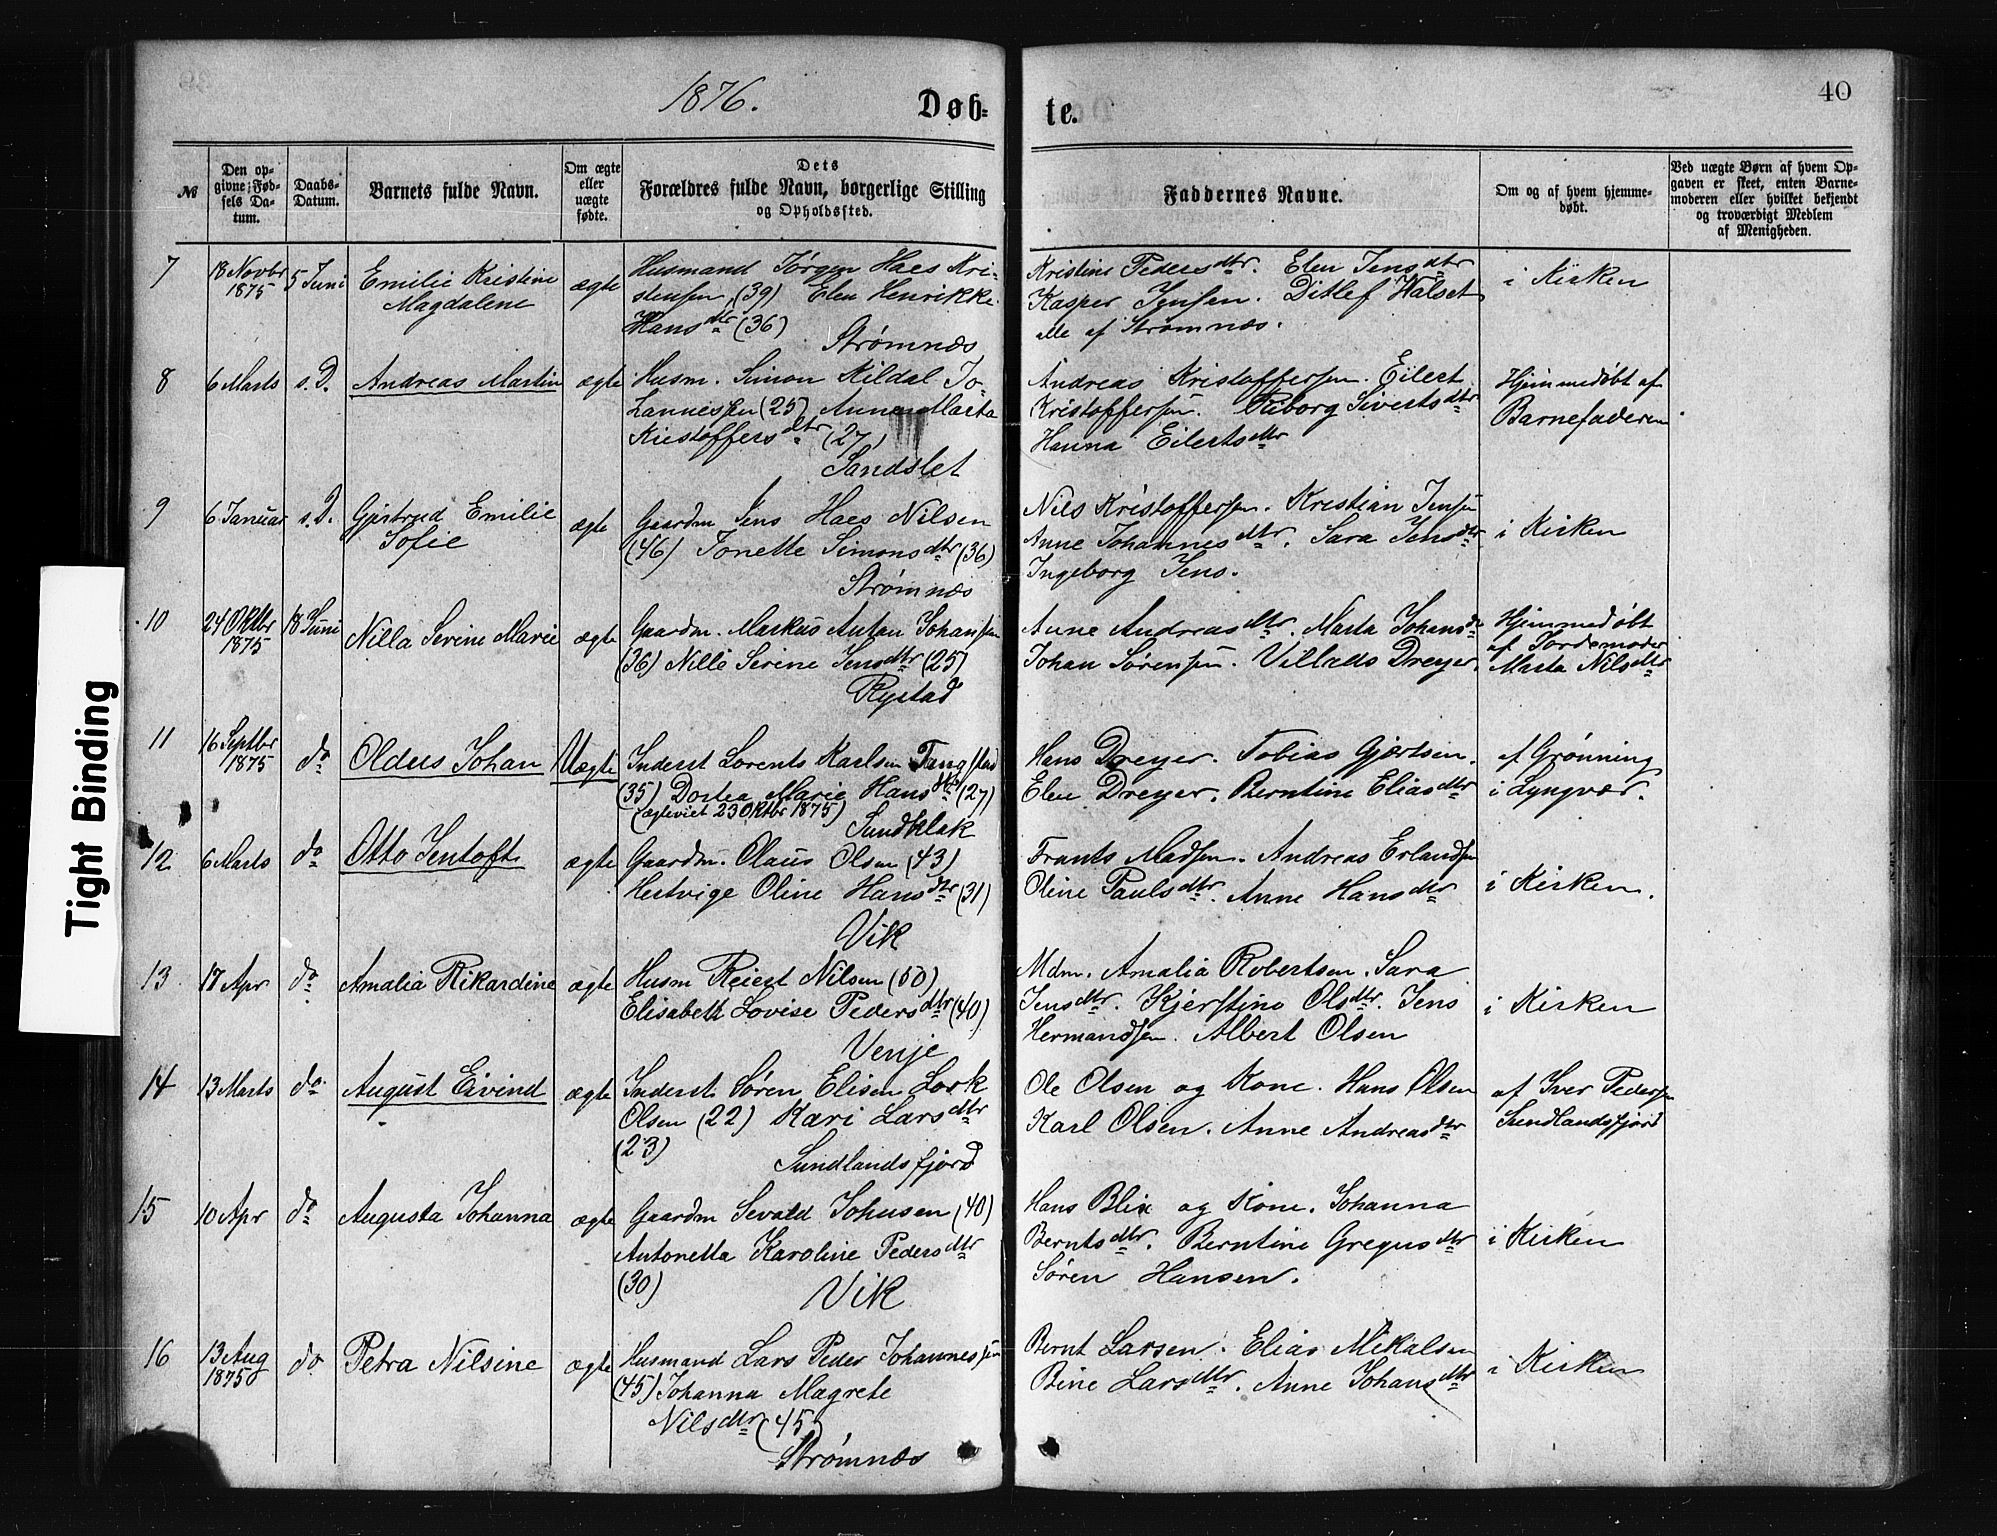 1876.
Døb=
te.
40
№
Den op-
givne Fød-
sels Da-
tum.
Daabs-
Datum.
Barnets fulde Navn.
Om ægte
eller
uægte
fødte.
Dets
Forældres fulde Navn, borgerlige Stilling
og Opholdssted.
Faddernes Navne.
Om og af hvem hjemme-
døbt.
Ved uægte Børn af hvem Op-
gaven er skeet, enten Barne-
moderen eller hvilket bekjendt
og troværdigt Medlem
af Menigheden.
7
18 Novbr
1875
5 Juni
Emilie Kristine
Magdalene
ægte
Husmand Jørgen Haes Kri-
stensen (39) Elen Henrikke
Hansdtr (36)
Strømnæs
Kristine Pedersdtr. Elen Jensdtr
Kasper Jensen. Ditlef Walset
alle af Strømnæs.
i Kirken
8
6 Marts
s. D.
Andreas Martin
ægte
Husm. Simon Kildal Jo-
hannessen (25) Anne Marta
Kristoffersdtr (27)
Sandslet
Andreas Kristoffersen. Eilert
Kristoffersen. Riborg Sivertsdtr
Hanna Eilertsdtr
Hjemmedøbt af
Barnefaderen
9
6 Januar
s. D.
Gjertrud Emilie
Sofie
ægte
Gaardm Jens Haes Nilsen
(46) Jonette Simonsdtr (36)
Strømnæs
Nils Kristoffersen. Kristian Jensen
Anne Johannesdtr. Sara Jensdtr
Ingeborg Jens.
i Kirken
10
24 Oktbr
1875
18 Juni
Nilla Serine Marie
ægte
Gaardm. Markus Antan Johansen
(36) Nille Serine Jensdtr (25)
Rystad
Anne Andreasdtr. Marta Johansd
Johan Sørensen. Villads Dreyer.
Hjemmedøbt
af Jordemoder
Marta Nilsdtr
11
16 Septbr
1875
do
Oldus Johan
Uægte
Inderst Lorents Karlsen Tangstad
(35) Dortea Marie Hansdtr (27)
(ægteviet 23 Oktbr 1875)
Sundklak
Hans Dreyer. Tobias Gjertsen.
Elen Dreyer. Berntine Eliasdtr
af Grønning
i Lyngvær.
12
6 Marts
do
Otto Jentoft
ægte
Gaardm. Olaus Olsen (43)
Hertvige Oline Hansdtr (31)
Vik
Frants Madsen. Andreas Erlandsen
Oline Paulsdtr. Anne Hansdtr
i Kirken.
13
17 Apr
do
Amalia Rikardine
ægte
Husm Reiert Nilsen (50)
Elisabeth Lovise Pedersdtr (40)
Venje
Mdm. Amalia Robertsen. Sara
Jensdtr. Kjerstine Olsdtr. Jens
Hermandsen. Albert Olsen
i Kirken
14
13 Marts
do.
August Eivind
ægte
Inderst. Søren Elisen Lork
Olsen (22) Kari Larsdtr
(23)
Sundlandsfjord
Ole Olsen og Kone. Hans Olsen
Karl Olsen. Anne Andreasdtr
af Iver Pedersen
Sundlandsfjord
15
10 Apr
do
Augusta Johanna
ægte
Gaardm Sevald Johnsen (40)
Antonetta Karoline Pedersdtr
(30)
Vik
Hans Blix og Kone. Johanna
Berntsdtr. Berntine Gregusdtr
Søren Hansen.
i Kirken
16
13 Aug
1875
do
Petra Nilsine
ægte
Husmand Lars Peder Johannessen
(45) Johanna Magrete
Nilsdtr (45)
Strømnæs
Bernt Larsen. Elias Mikalsen
Bine Larsdtr. Anne Johansdtr
i Kirken
Tight Binding